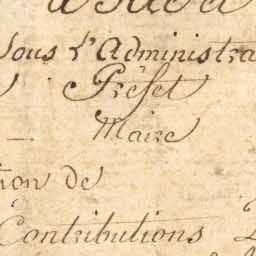 Sous l'Administra
Préfet
Maire
tion de
Contributions